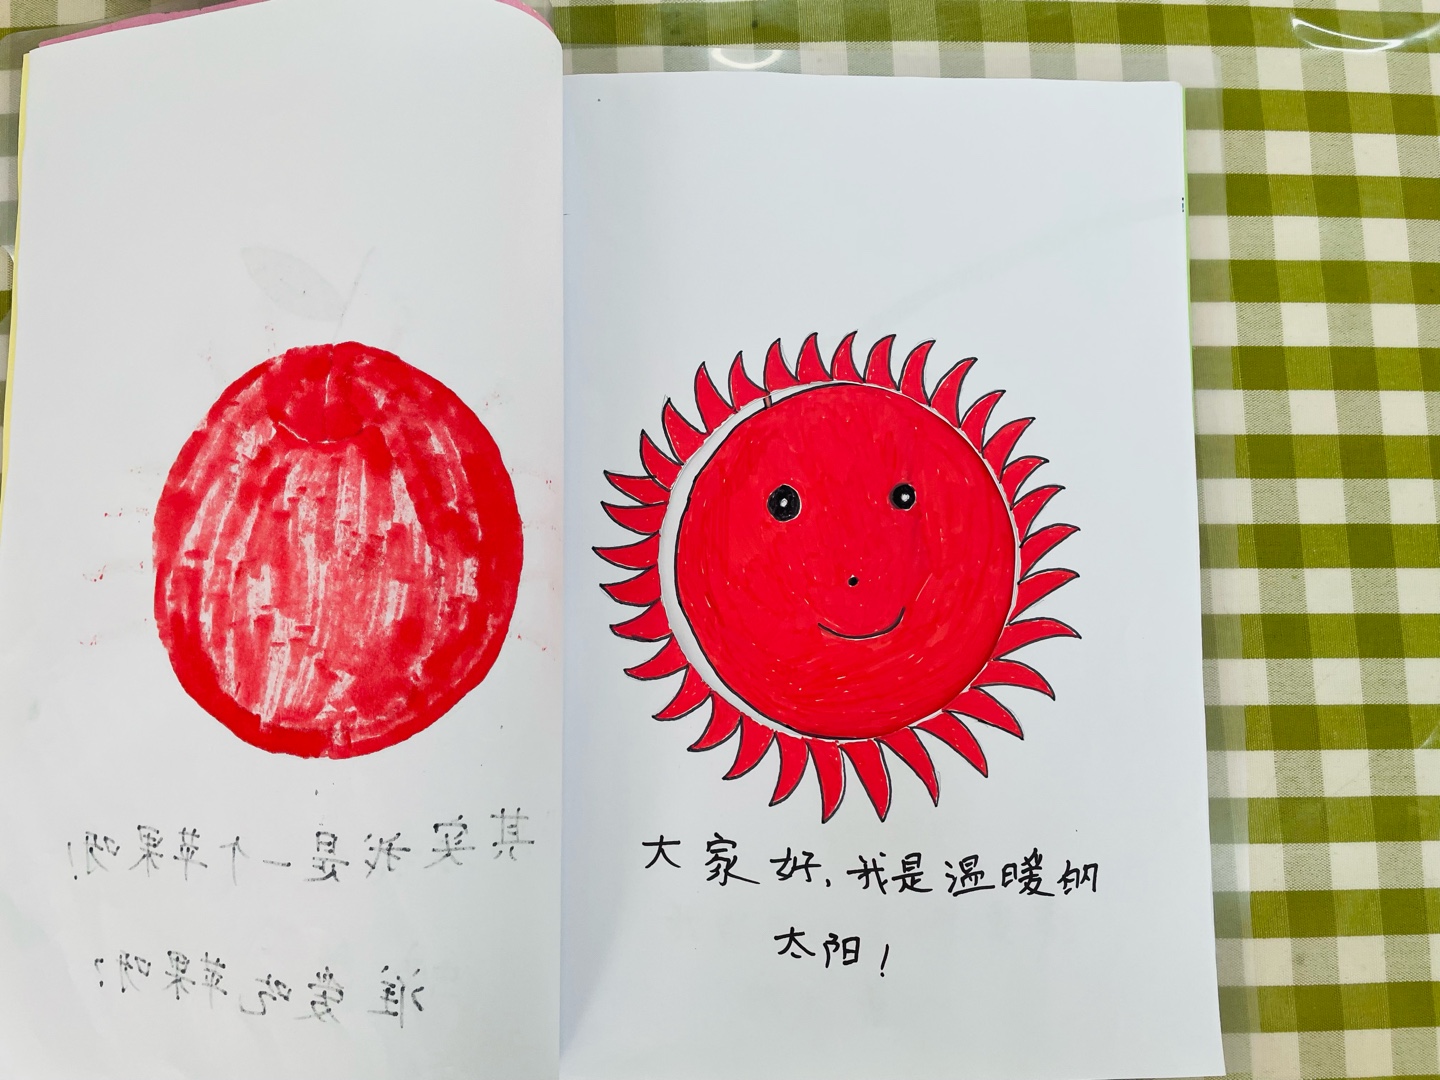 其实我是一个苹果哟!
谁爱吃苹果呀?
大家好,我是温暖的
太阳!